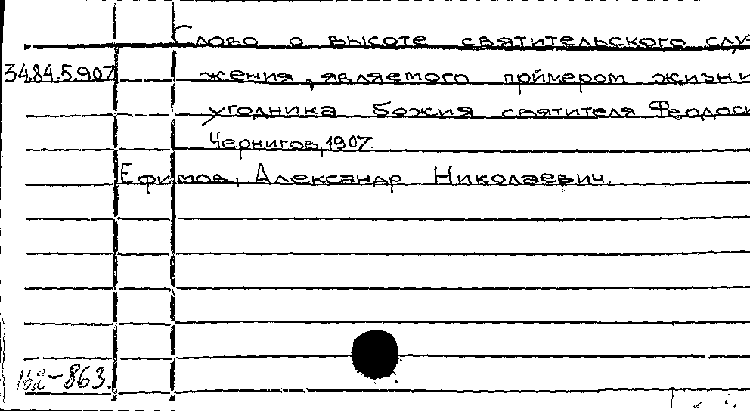 Слово о высоте святительского слу
3484.5.907 жения, являемого примером жизни
угодника Божия святителя Феодоси
Чернигов, 1907
Ефимов, Александр Николаевич.
-863.